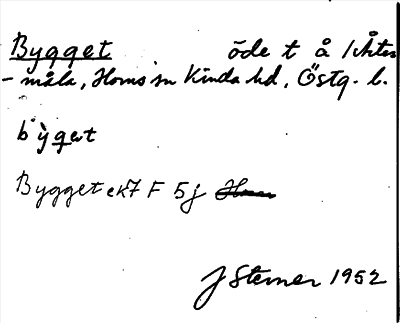 Bygget öde t å
-måla, Horns sn Kinda hd, Östg. l.
b`yget
Bygget ek7 F 5j
J Sterner 1952